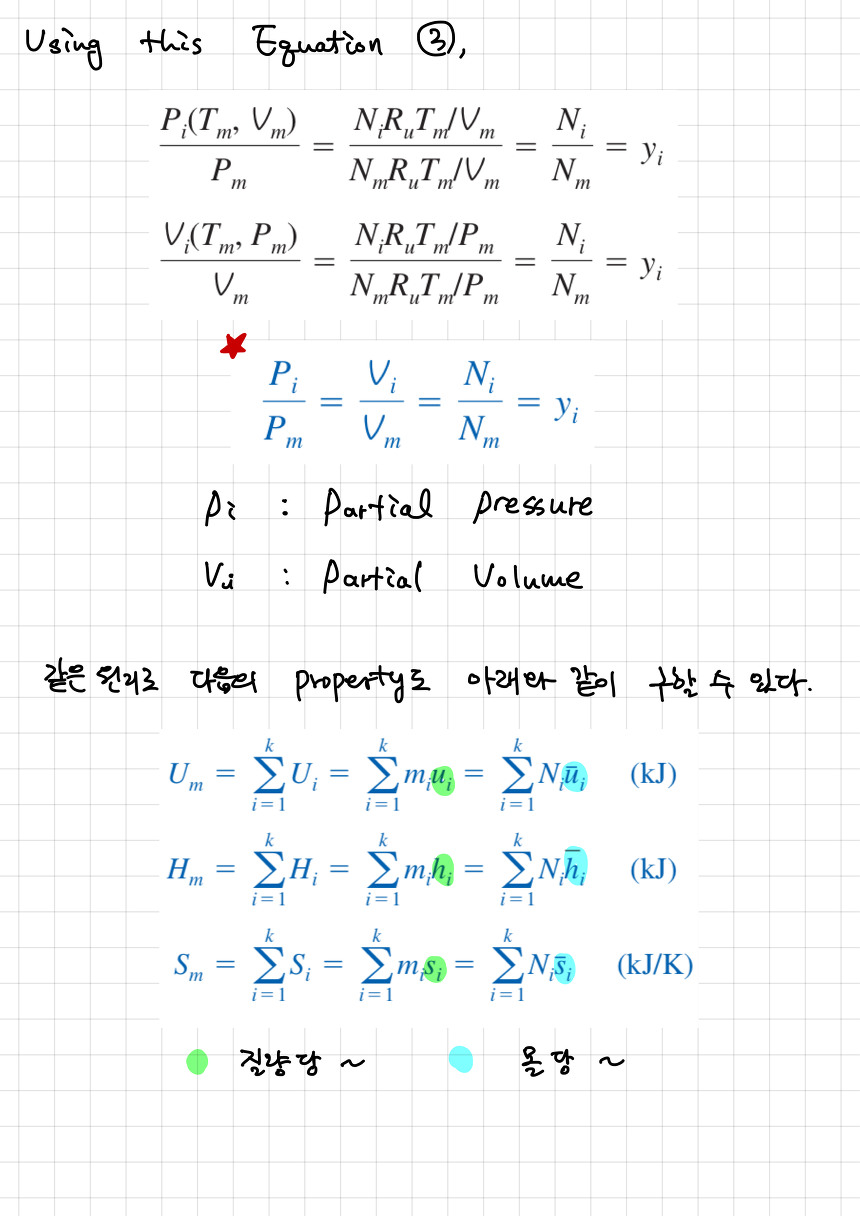 Using this Equation ③,
Pᵢ(Tₘ, Vₘ)/Pₘ = (NᵢRᵤTₘ/Vₘ)/(NₘRᵤTₘ/Vₘ) = Nᵢ/Nₘ = yᵢ
Vᵢ(Tₘ, Pₘ)/Vₘ = (NᵢRᵤTₘ/Pₘ)/(NₘRᵤTₘ/Pₘ) = Nᵢ/Nₘ = yᵢ
Pᵢ/Pₘ = Vᵢ/Vₘ = Nᵢ/Nₘ = yᵢ
Pi : Partial pressure
Vi : Partial Volume
같은 원리로 다음의 property도 아래와 같이 구할 수 있다.
Uₘ = ∑ᵢ₌₁ᵏ Uᵢ = ∑ᵢ₌₁ᵏ mᵢuᵢ = ∑ᵢ₌₁ᵏ Nᵢūᵢ (kJ)
Hₘ = ∑ᵢ₌₁ᵏ Hᵢ = ∑ᵢ₌₁ᵏ mᵢhᵢ = ∑ᵢ₌₁ᵏ Nᵢh̄ᵢ (kJ)
Sₘ = ∑ᵢ₌₁ᵏ Sᵢ = ∑ᵢ₌₁ᵏ mᵢsᵢ = ∑ᵢ₌₁ᵏ Nᵢs̄ᵢ (kJ/K)
질량당 ~ 몰당 ~